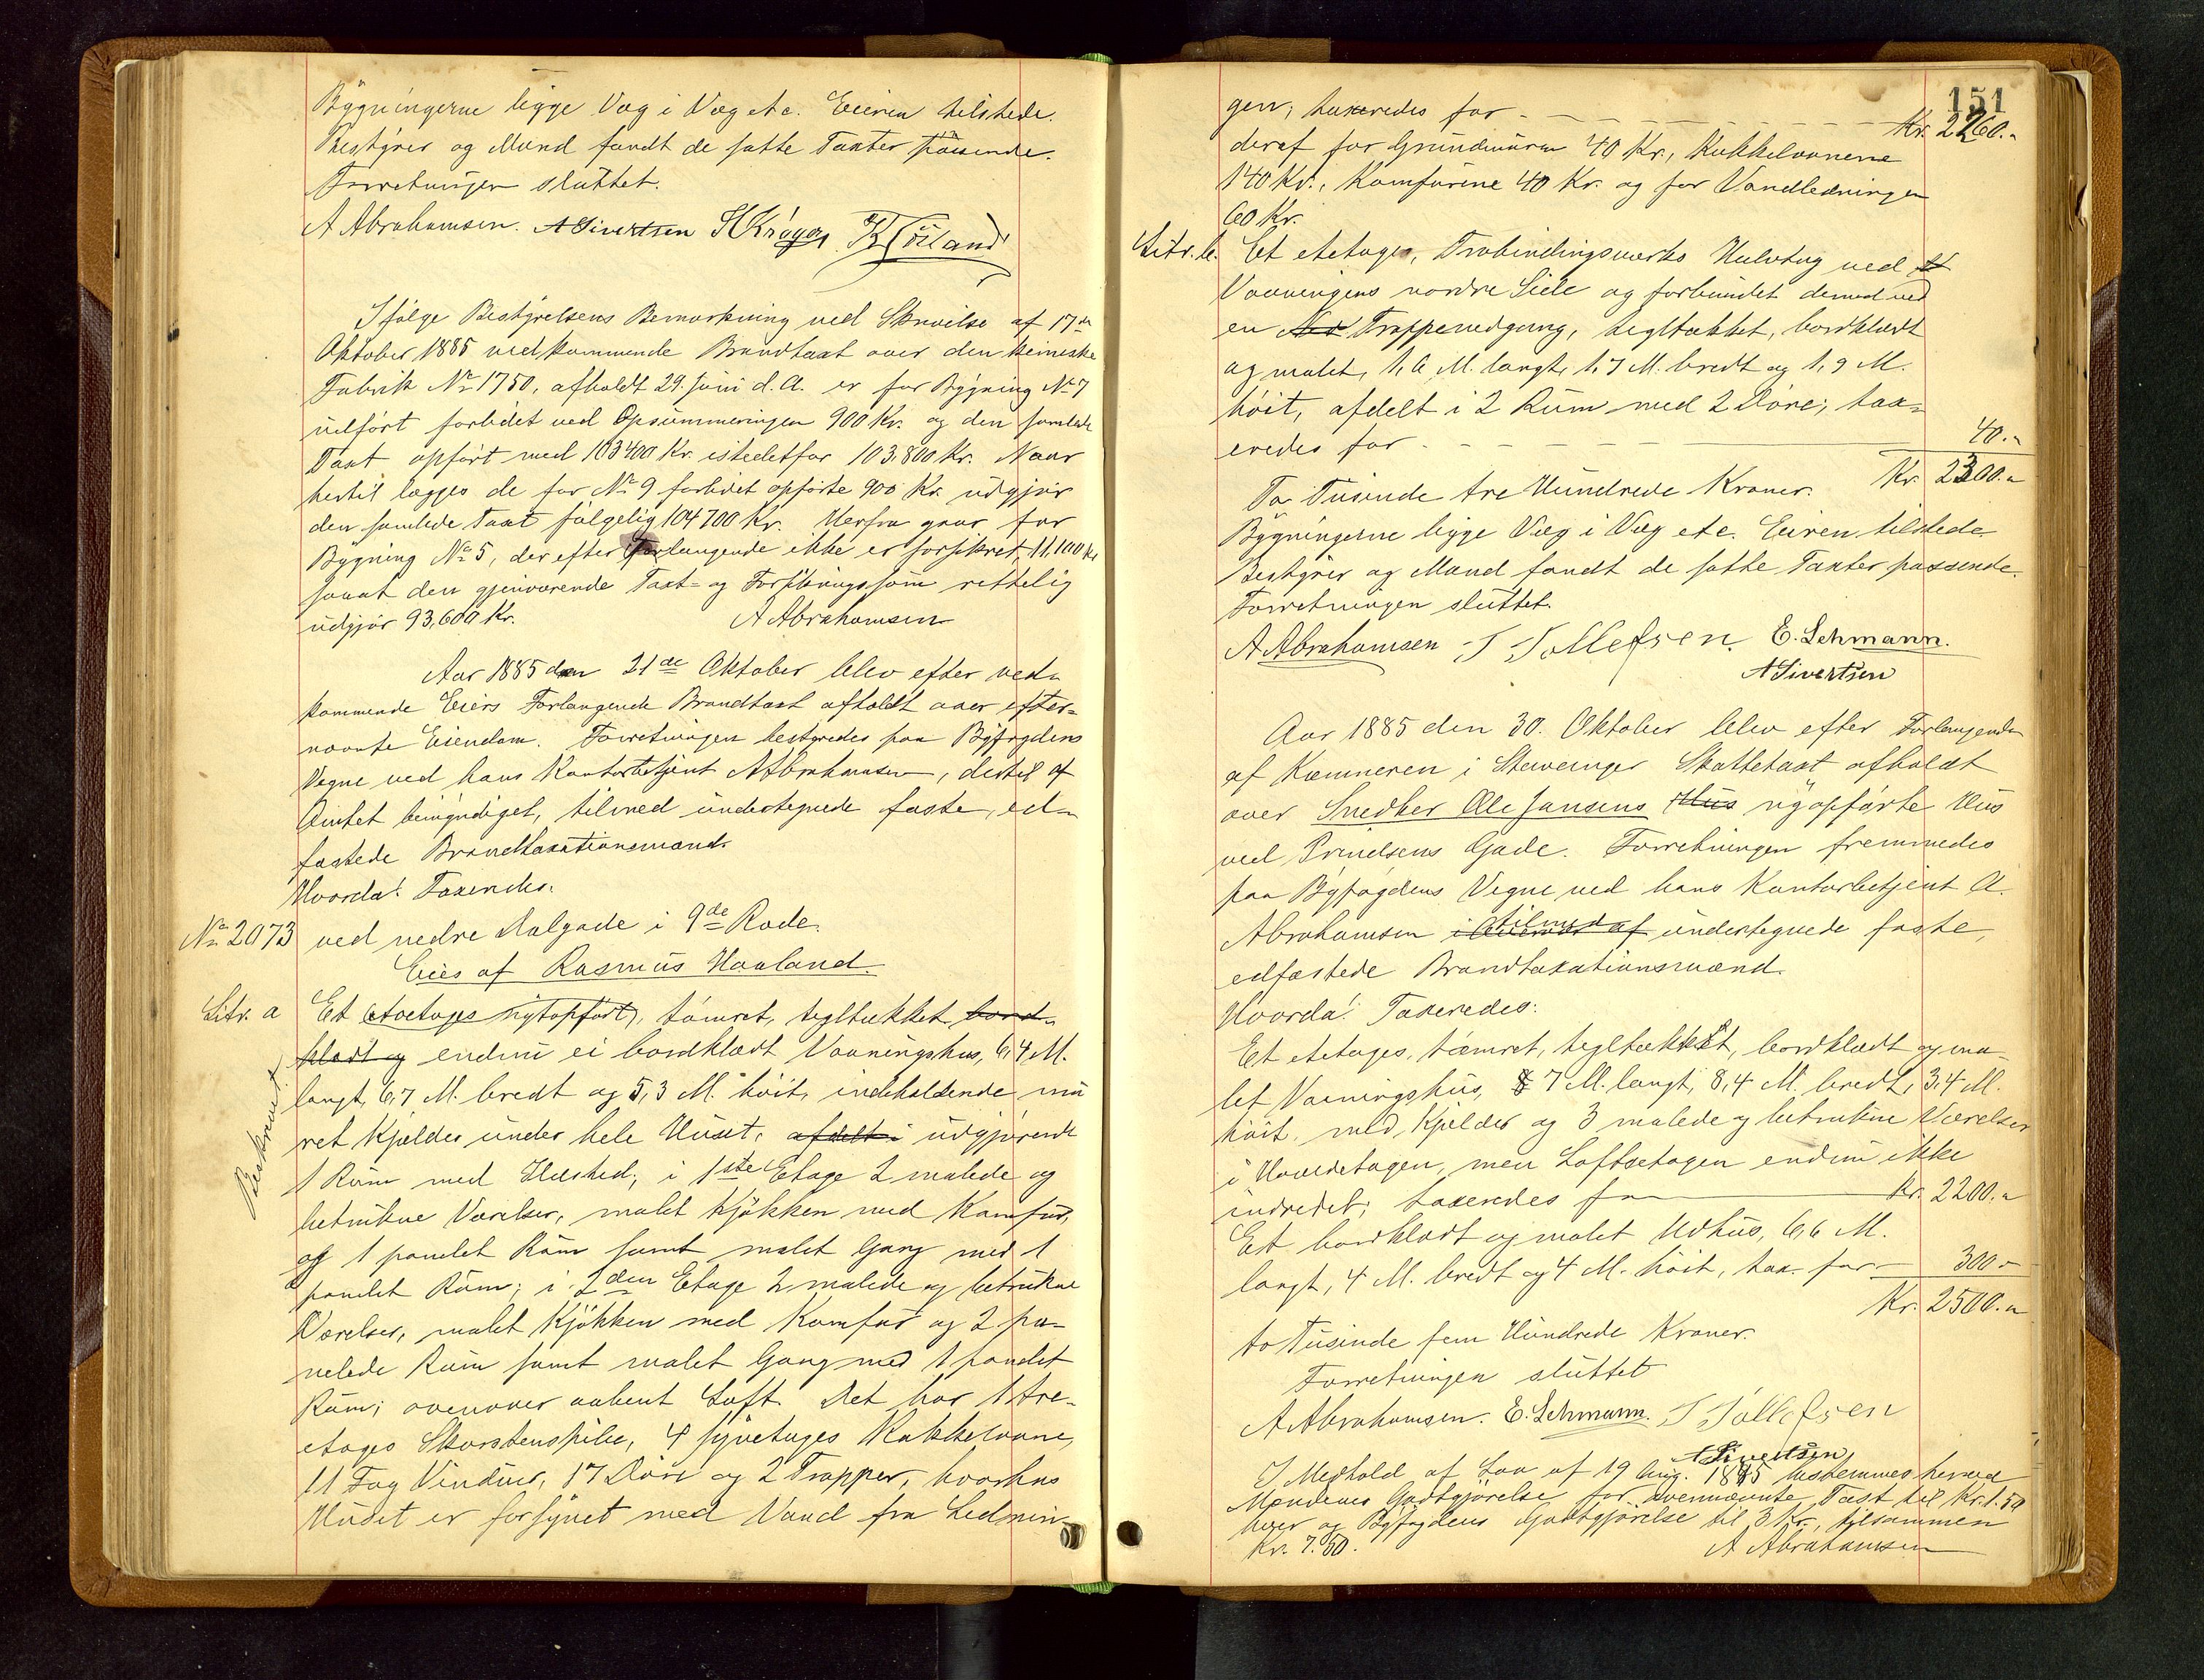 Bygningerne ligge Væg i Væg etc. Eieren tilstede.
Bestyrer og Mænd fandt de satte Taxter passende.
Forretningen sluttet.
A Abrahamsen. A Sivertsen
Ifølge Bestyrelsens Bemærkning ved Skrivelse af 17de
Oktober 1885 vedkommende Brandtaxt over den kemiske
Fabrik No 1750, afholdt 29. Juni d. A. er for Bygning No 7
udført forbidet ved Opsummeringen 900 Kr. og den samlede
Taxt opført med 103400 Kr. istedetfor 103.800 Kr. Naar
hertil lægges de for No 9 forbidet opførte 900 Kr. udgjør
den samlede Taxt følgelig 104700 Kr. Herfra gaar for
Bygning No 5, der efter Forlangende ikke er forsikret, 11,100 Kr
saaat den gjenværende Taxt- og Forsikringssum rettelig
udgjør 93,600 Kr. A Abrahamsen
Aar 1885 den 21de Oktober blev efter ved-
kommende Eiers Forlangende Brandtaxt afholdt over efter-
nævnte Eiendom. Forretningen bestyredes paa Byfogdens
Vegne ved hans Kontorbetjent A Abrahamsen, dertil af
Amtet bemyndiget, tilmed undertegnede faste, ed-
fæstede Brandtaxationsmænd.
Hvorda! Taxeredes:
No 2073 ved nedre Dalgade i 9de Rode.
Eies af Rasmus Haaland.
Litr. a Et toetages nytopført, tømret, tegltækket, bord-
klædt og endnu ei bordklædt Vaaningshus, 6,4 M.
langt, 6,7 M. bredt og 5,3 M. høit, indeholdende mu
ret Kjelder under hele Huset, afdelt i udgjørende
1 Rum med Ildsted; i 1ste Etage 2 malede og
betrukne Værelser, malet Kjøkken med Komfur,
og 1 panelet Rum samt malet Gang med 1
panelet Rum; i 2den Etage 2 malede og betrukne
Værelser, malet Kjøkken med Komfur og 2 pa-
nelede Rum samt malet Gang med 1 panelet
Rum; ovenover aabent Loft. Det har 1 tre-
etages Skorstenspibe, 4 Kakkelovne,
11 Fag Vinduer, 17 Døre og 2 Trapper, hvorhos
Huset er forsynet med Vand fra Lednin-
151
gen; taxeredes for Kr. 2260.-
deraf for Grundmuren 40 Kr., Kakkelovnene
140 Kr., Komfurene 40 Kr. og for Vandledningen
60 Kr.
Litr. b. Et etetages, Træbindingsværks Halvtag ved
Vaaningens nordre Side og forbundet dermed ved
en Trappenedgang, tegltækket, bordklædt
og malet, 1,6 M. langt, 1,7 M. bredt og 1,9 M.
høit, afdelt i 2 Rum med 2 Døre; tax-
eredes for 40.-
To Tusinde tre Hundrede Kroner. Kr. 2300.-
Bygningerne ligge Væg i Væg etc. Eieren tilstede.
Bestyrer og Mænd fandt de satte Taxter passende.
Forretningen sluttet.
A Abrahamsen T Tollefsen. E. Lehmann.
A Sivertsen
Aar 1885 den 30. Oktober blev efter Forlangende
af Kæmneren i Stavanger Skattetaxt afholdt
over Snedker Ole Jansens Hus nyopførte Hus
ved Prindsens Gade. Forretningen fremmedes
paa Byfogdens Vegne ved hans Kontorbetjent A.
Abrahamsen tilmed undertegnede faste,
edfæstede Brandtaxationsmænd.
Hvorda! Taxeredes:
Et etetages, tømret, tegltækket, bordklædt og ma-
let Vaaningshus, 7 M. langt, 8,4 M. bredt, 3,4 M.
høit, med Kjelder og 3 malede og betrukne Værelser
i Hovedetagen, men Loftsetagen endnu ikke
indredet; taxeredes for Kr. 2200.-
Et bordklædt og malet Udhus, 6,6 M.
langt, 4 M. bredt og 4 M. høit, tax. for 300.-
Kr. 2500.-
to Tusinde fem Hundrede Kroner.
Forretningen sluttet
A Abrahamsen. E. Lehmann. T Tollefsen
A Sivertsen
I Medhold af Lov af 19 Aug. 1845 bestemmes herved
Mændenes Godtgjørelse for ovennævnte Taxt til Kr. 1.50
hver og Byfogdens Godtgjørelse til 3 Kr., tilsammen
Kr. 7.50. A Abrahamsen